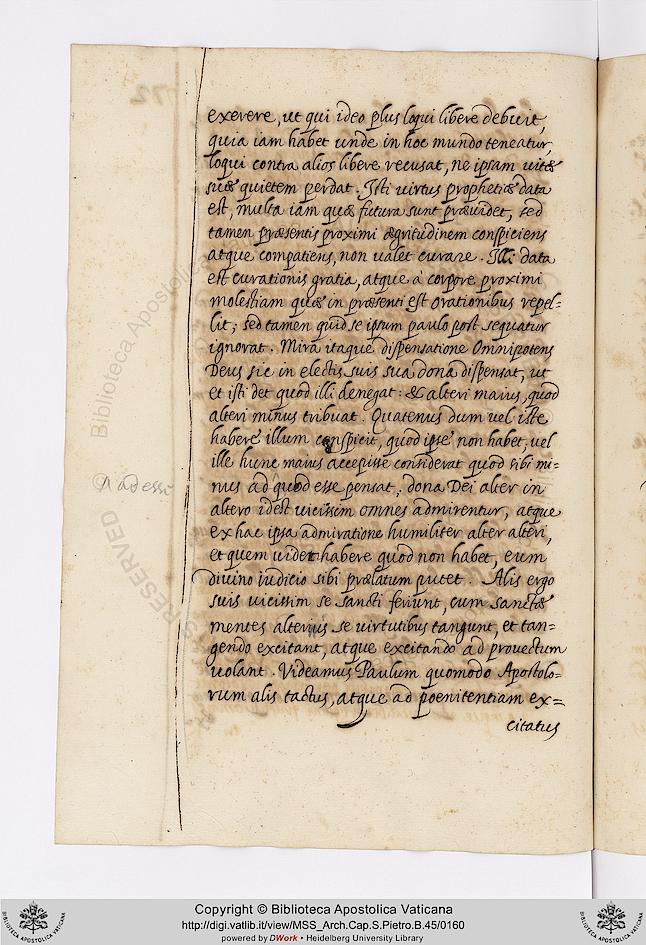 exerere, ut qui ideo plus loqui libere debuit,
quia iam habet unde in hoc mundo teneatur,
loqui contra alios libere recusat, ne ipsam uitæ
suæ quietem perdat. Isti uirtus prophetiæ data
est, multa iam quæ futura sunt præuidet, sed
tamen præsentis proximi ægritudinem conspiciens
atque compatiens, non ualet curare. Illi data
est curationis gratia, atque à corpore proximi
molestiam quæ in præsenti est orationibus repel=
lit; sed tamen quid se ipsum paulo post sequatur
ignorat. Mira itaque dispensatione Omnipotens
Deus sic in electis suis sua dona dispensat, ut
et isti det quod illi denegat: & alteri maius, quod
alteri minus tribuat. Quatenus dum uel iste
habere illum conspicit, quod ipse non habet, uel
ille hunc maius accepisse considerat quod sibi mi=
nus ad quod esse pensat; dona Dei alter in
altero idest uicissim omnes admirentur, atque
ex hac ipsa admiratione humiliter alter alteri,
et quem uidet habere quod non habet, eum
diuino iudicio sibi prælatum putet. Alis ergo
suis uicissim se sancti feriunt, cum sanctæ
mentes alterius se virtutibus tangunt, et tan=
gendo excitant, atque excitando ad prouectum
uolant. Videamus Paulum quomodo Apostolo=
rum alis tactus, atque ad poenitentiam ex=
citatus
Biblioteca Apostolica
RESERVED
Copyright © Biblioteca Apostolica Vaticana
http://digi.vatlib.it/view/MSS_Arch.Cap.S.Pietro.B.45/0160
powered by DWork • Heidelberg University Library